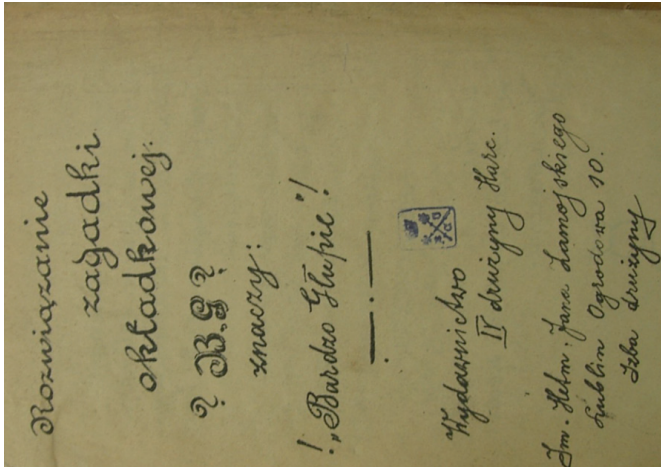 Rozwiązanie
zagadki
okładkowej:
? B.G ?
znaczy:
! „Bardzo Głupie”!
Wydawnictwo
IV drużyny Harc.
Im. Hetm. Jana Zamojskiego
Lublin Ogrodowa 10.
Izba drużyny